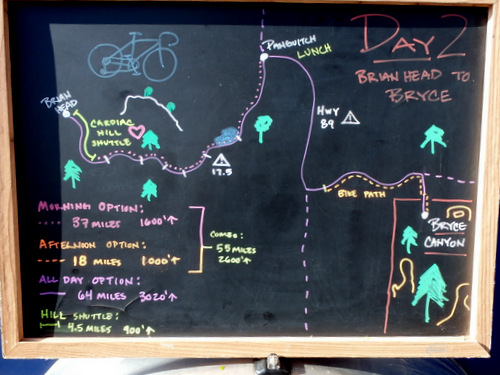 DAY 2
BRIAN HEAD TO
BRYCE
PANGUITCH
LUNCH
BRIAN
HEAD
CARDIAC
HILL
SHUTTLE
HWY
89
17.5
BIKE PATH
BRYCE
CANYON
MORNING OPTION:
37 MILES 1600'↑
AFTERNOON OPTION:
18 MILES 1000'↑
COMBO:
55 MILES
2600'↑
ALL DAY OPTION:
64 MILES 3020'↑
HILL SHUTTLE:
4.5 MILES 900'↑